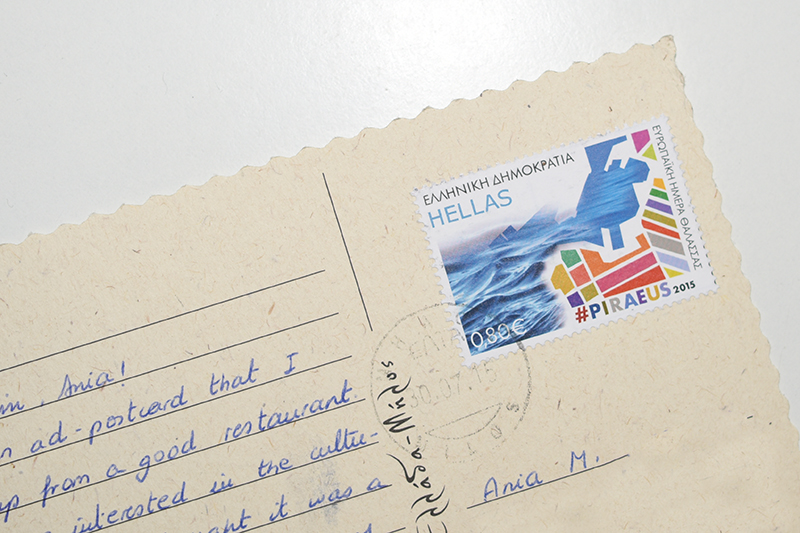 ΕΛΛΗΝΙΚΗ ΔΗΜΟΚΡΑΤΙΑ
HELLAS
ΕΥΡΩΠΑΪΚΗ ΗΜΕΡΑ ΘΑΛΑΣΣΑΣ
#PIRAEUS 2015
0,80€
30.07.15
Ania!
ad-postcard that I
from a good restaurant.
interested in the cultu-
it was a
Ania M.